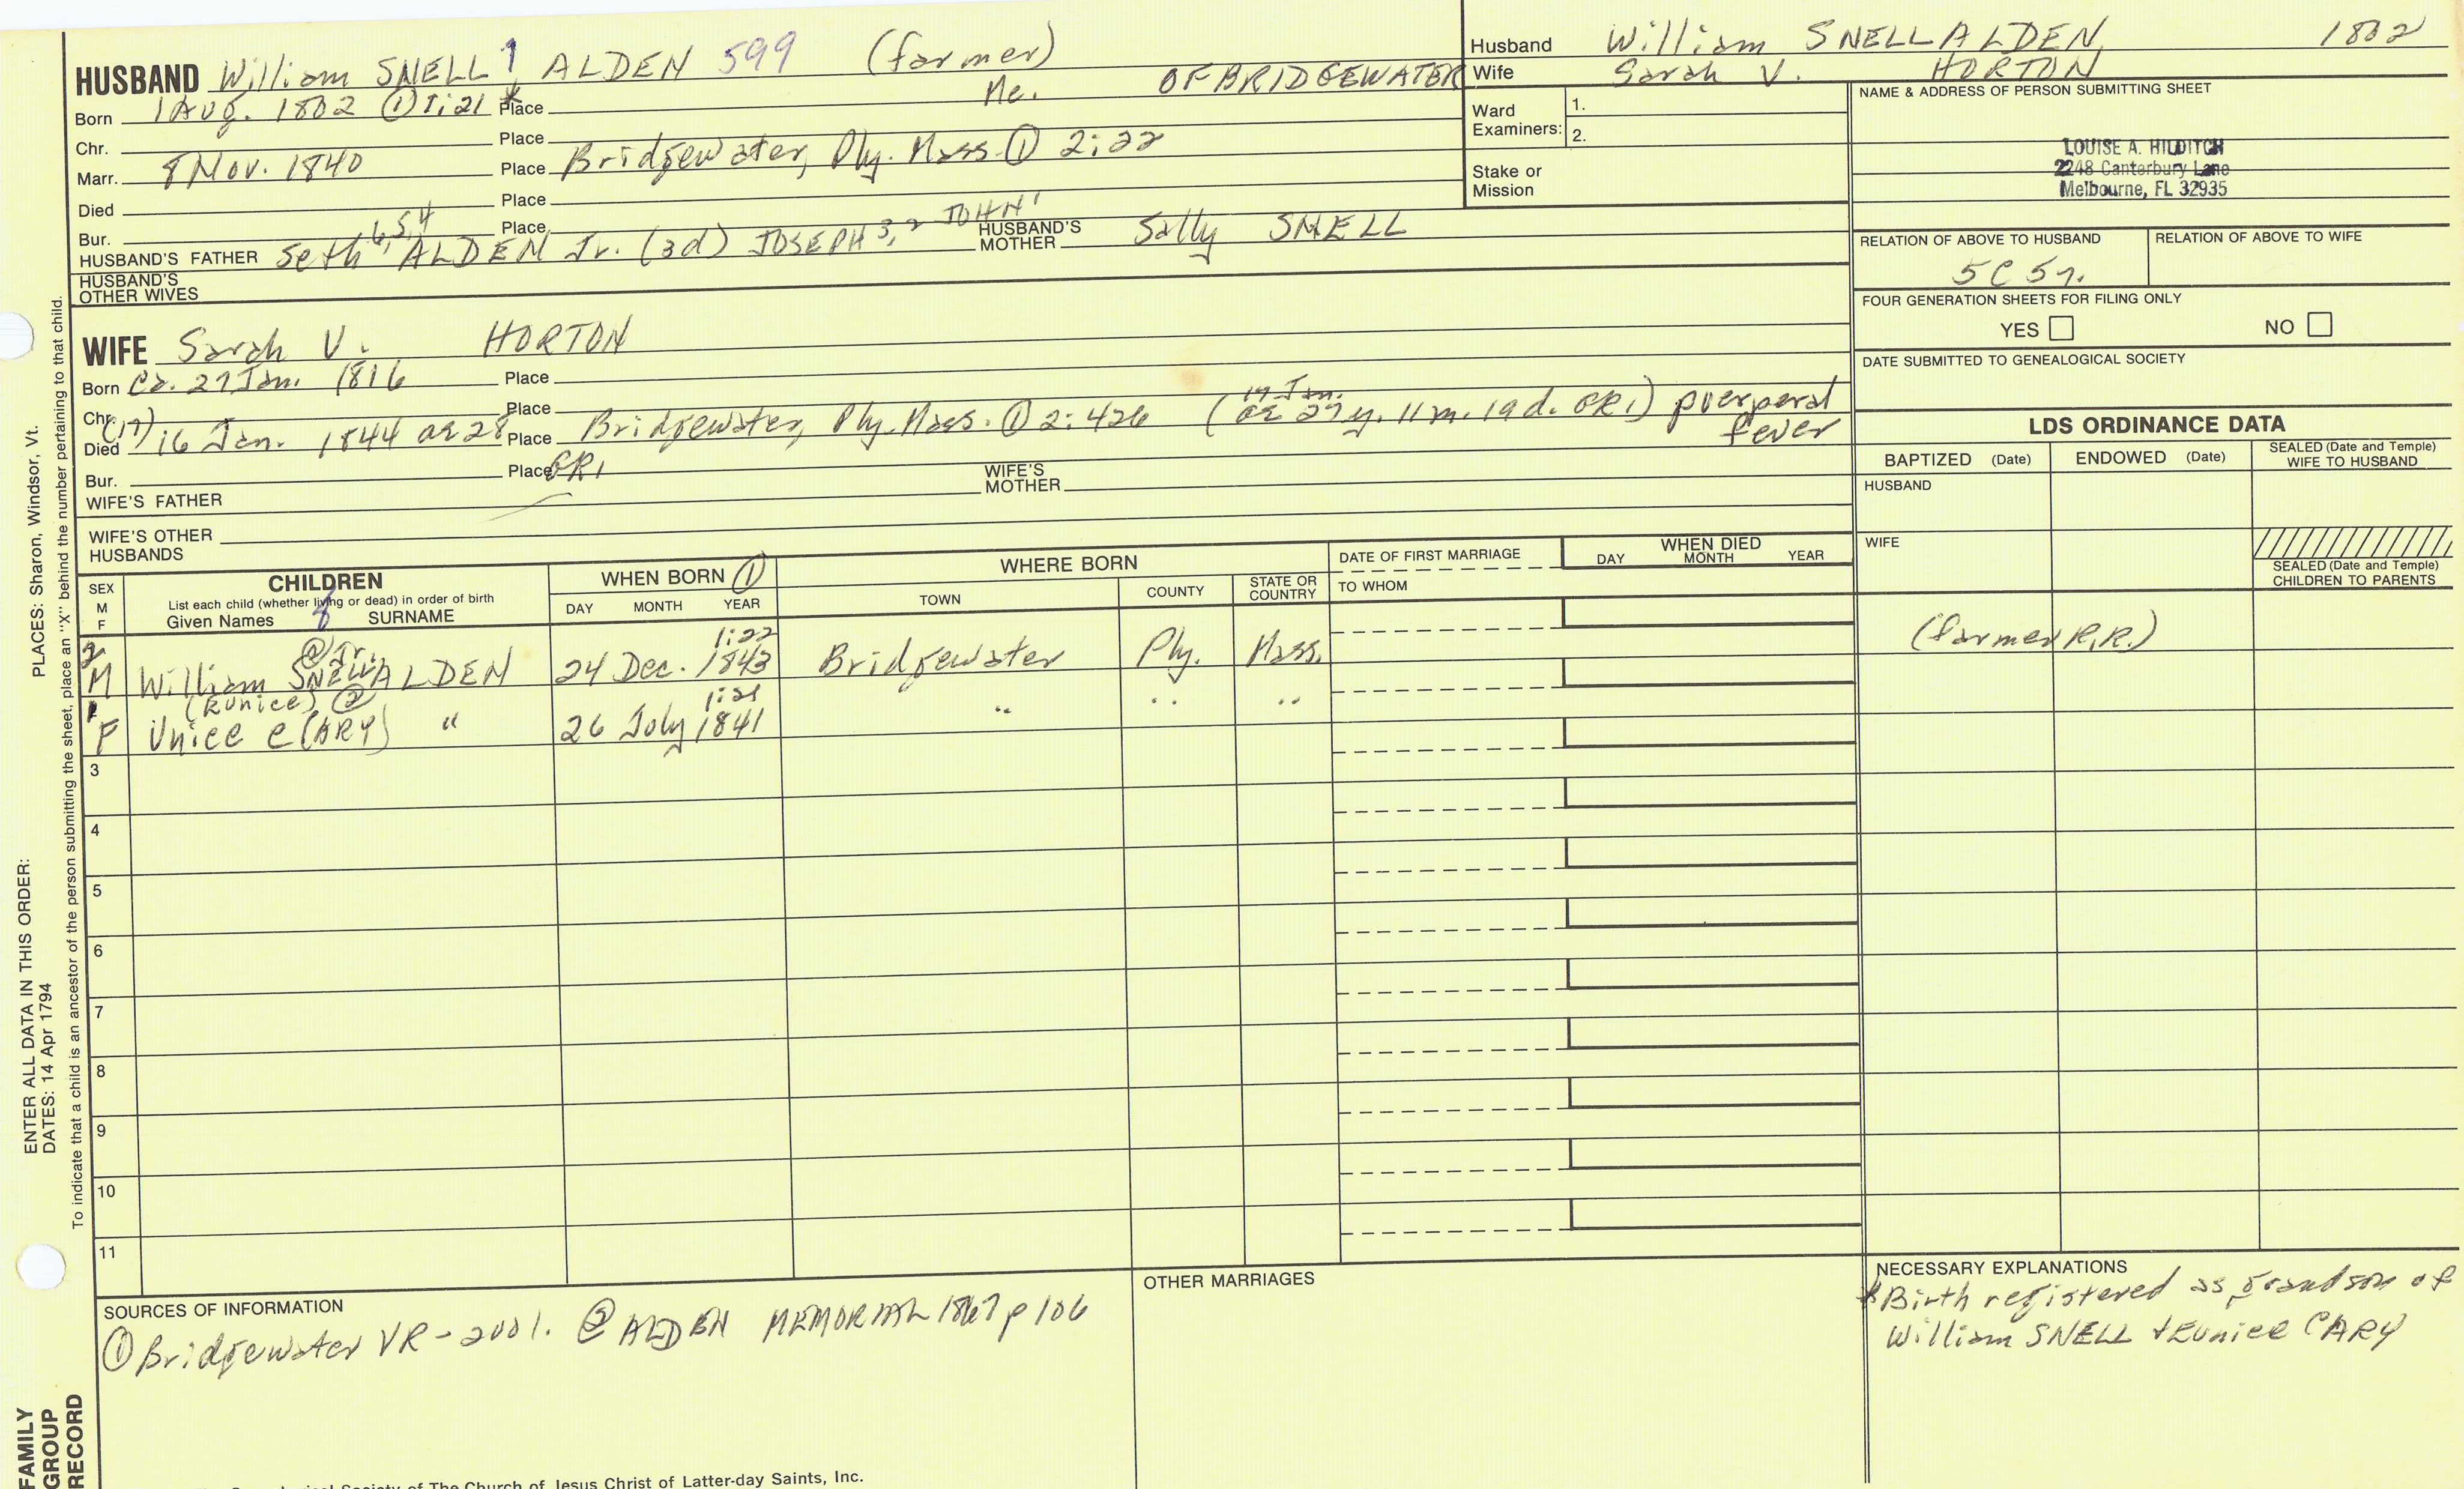 HUSBAND William SNELL 7 ALDEN 599 (farmer)
Born 1 Aug. 1802 ① 1:21 * Place Me. OF BRIDGEWATER
Chr. Place
Marr. 8 Nov. 1840 Place Bridgewater, Ply. Mass. ① 2:22
Died Place
Bur. Place
HUSBAND'S FATHER Seth 6,5,4 ALDEN Jr. (3d) JOSEPH 3,2 JOHN 1 HUSBAND'S MOTHER Sally SNELL
HUSBAND'S OTHER WIVES
WIFE Sarah V. HORTON
Born Ca. 27 Jan. 1816 Place
Chr. Place
Died (17) 16 Jan. 1844 ae 28 Place Bridgewater, Ply. Mass. ① 2:426 (17 Jan. ae 27 y. 11 m. 19 d. GR1) puerperal fever
Bur. Place GR1
WIFE'S FATHER WIFE'S MOTHER
WIFE'S OTHER HUSBANDS
Husband William SNELL ALDEN 1802
Wife Sarah V. HORTON
Ward Examiners: 1.
2.
Stake or Mission
NAME & ADDRESS OF PERSON SUBMITTING SHEET
LOUISE A. HILDITCH
2248 Canterbury Lane
Melbourne, FL 32935
RELATION OF ABOVE TO HUSBAND RELATION OF ABOVE TO WIFE
5C 5r.
FOUR GENERATION SHEETS FOR FILING ONLY
YES NO
DATE SUBMITTED TO GENEALOGICAL SOCIETY
LDS ORDINANCE DATA
BAPTIZED (Date) ENDOWED (Date) SEALED (Date and Temple) WIFE TO HUSBAND
HUSBAND
WIFE
SEALED (Date and Temple) CHILDREN TO PARENTS
SEX M F
CHILDREN
List each child (whether living or dead) in order of birth
Given Names 8 SURNAME
WHEN BORN ①
DAY MONTH YEAR
WHERE BORN
TOWN COUNTY STATE OR COUNTRY
DATE OF FIRST MARRIAGE
TO WHOM
WHEN DIED
DAY MONTH YEAR
2 M William SNELL @ Jr. ALDEN 24 Dec. 1843 1:22 Bridgewater Ply. Mass. (farmer R.R.)
1 F Unice (Eunice) @ C(ARY) " 26 July 1841 1:21 " " "
3
4
5
6
7
8
9
10
11
SOURCES OF INFORMATION
① Bridgewater VR - 2vol. ② ALDEN MEMORIAL 1867 p 106
OTHER MARRIAGES
NECESSARY EXPLANATIONS
* Birth registered as grandson of
William SNELL + Eunice CARY
ENTER ALL DATA IN THIS ORDER:
DATES: 14 Apr 1794 PLACES: Sharon, Windsor, Vt.
To indicate that a child is an ancestor of the person submitting the sheet, place an "X" behind the number pertaining to that child.
FAMILY GROUP RECORD
Society of The Church of Jesus Christ of Latter-day Saints, Inc.